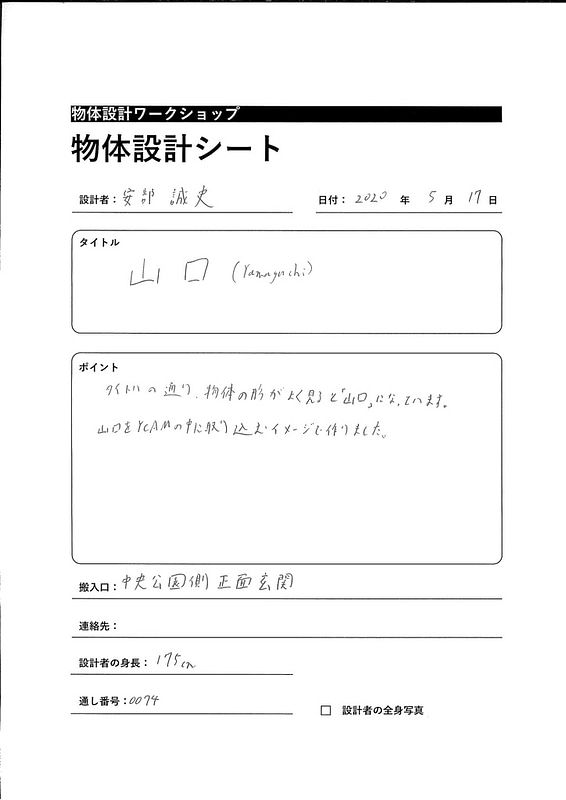 物体設計ワークショップ
物体設計シート
設計者：安部 誠史
日付：2020 年 5 月 17 日
タイトル
山口 (Yamaguchi)
ポイント
タイトルの通り、物体の形がよく見ると「山口」になっています。
山口をYCAMの中に取り込むイメージで作りました。
搬入口：中央公園側 正面玄関
連絡先：
設計者の身長：175cm
通し番号：0074
□ 設計者の全身写真